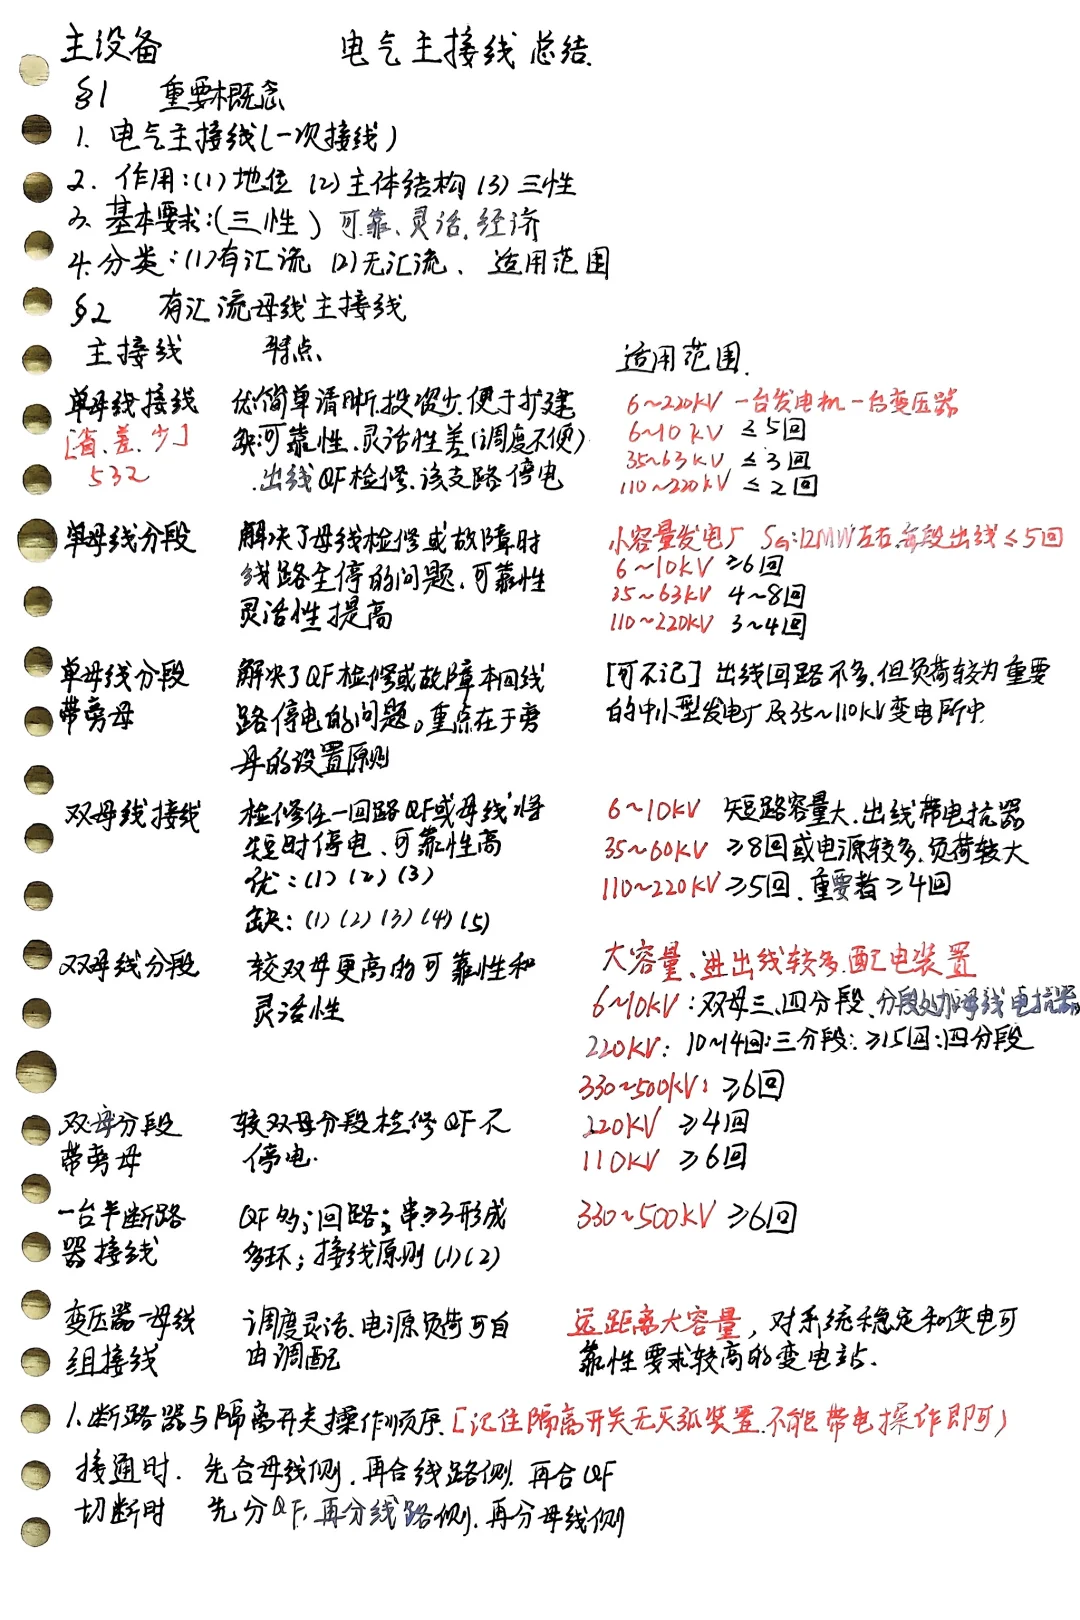 主设备 电气主接线总结.
§1 重要概念
1. 电气主接线(一次接线)
2. 作用:(1)地位 (2)主体结构 (3)三性
3. 基本要求:(三性) 可靠、灵活、经济
4. 分类:(1)有汇流 (2)无汇流、适用范围
§2 有汇流母线主接线
主接线 特点 适用范围.
单母线接线 优:简单清晰,投资少,便于扩建 6~220KV 一台发电机一台变压器
[省、差、少] 缺:可靠性、灵活性差(调度不便) 6~10KV ≤5回
532 出线QF检修、该支路停电 35~63KV ≤3回
110~220KV ≤2回
单母线分段 解决了母线检修或故障时 小容量发电厂 SG:12MW左右,每段出线≤5回
线路全停的问题、可靠性 6~10KV ≥6回
灵活性提高 35~63KV 4~8回
110~220KV 3~4回
单母线分段 解决了QF检修或故障本回线 [可不记] 出线回路不多,但负荷较为重要
带旁母 路停电的问题。重点在于旁 的中小型发电厂及35~110KV变电所中
母的设置原则
双母线接线 检修任一回路QF或母线将 6~10KV 短路容量大、出线带电抗器
短时停电、可靠性高 35~60KV ≥8回或电源较多、负荷较大
优:(1)(2)(3) 110~220KV ≥5回、重要者≥4回
缺:(1)(2)(3)(4)(5)
双母线分段 较双母更高的可靠性和 大容量、进出线较多,配电装置
灵活性 6~10KV:双母三、四分段、分段处加母线电抗器
220KV:10~14回:三分段:≥15回:四分段
330~500KV:≥6回
双母分段 较双母分段检修QF不 220KV ≥4回
带旁母 停电. 110KV ≥6回
一台半断路 QF多;回路;串≥3形成 330~500KV ≥6回
器接线 多环;接线原则(1)(2)
变压器一母线 调度灵活、电源负荷可自 远距离大容量,对系统稳定和供电可
组接线 由调配 靠性要求较高的变电站.
1.断路器与隔离开关操作顺序.[记住隔离开关无灭弧装置.不能带电操作即可)
接通时. 先合母线侧.再合线路侧.再合QF
切断时 先分QF,再分线路侧.再分母线侧